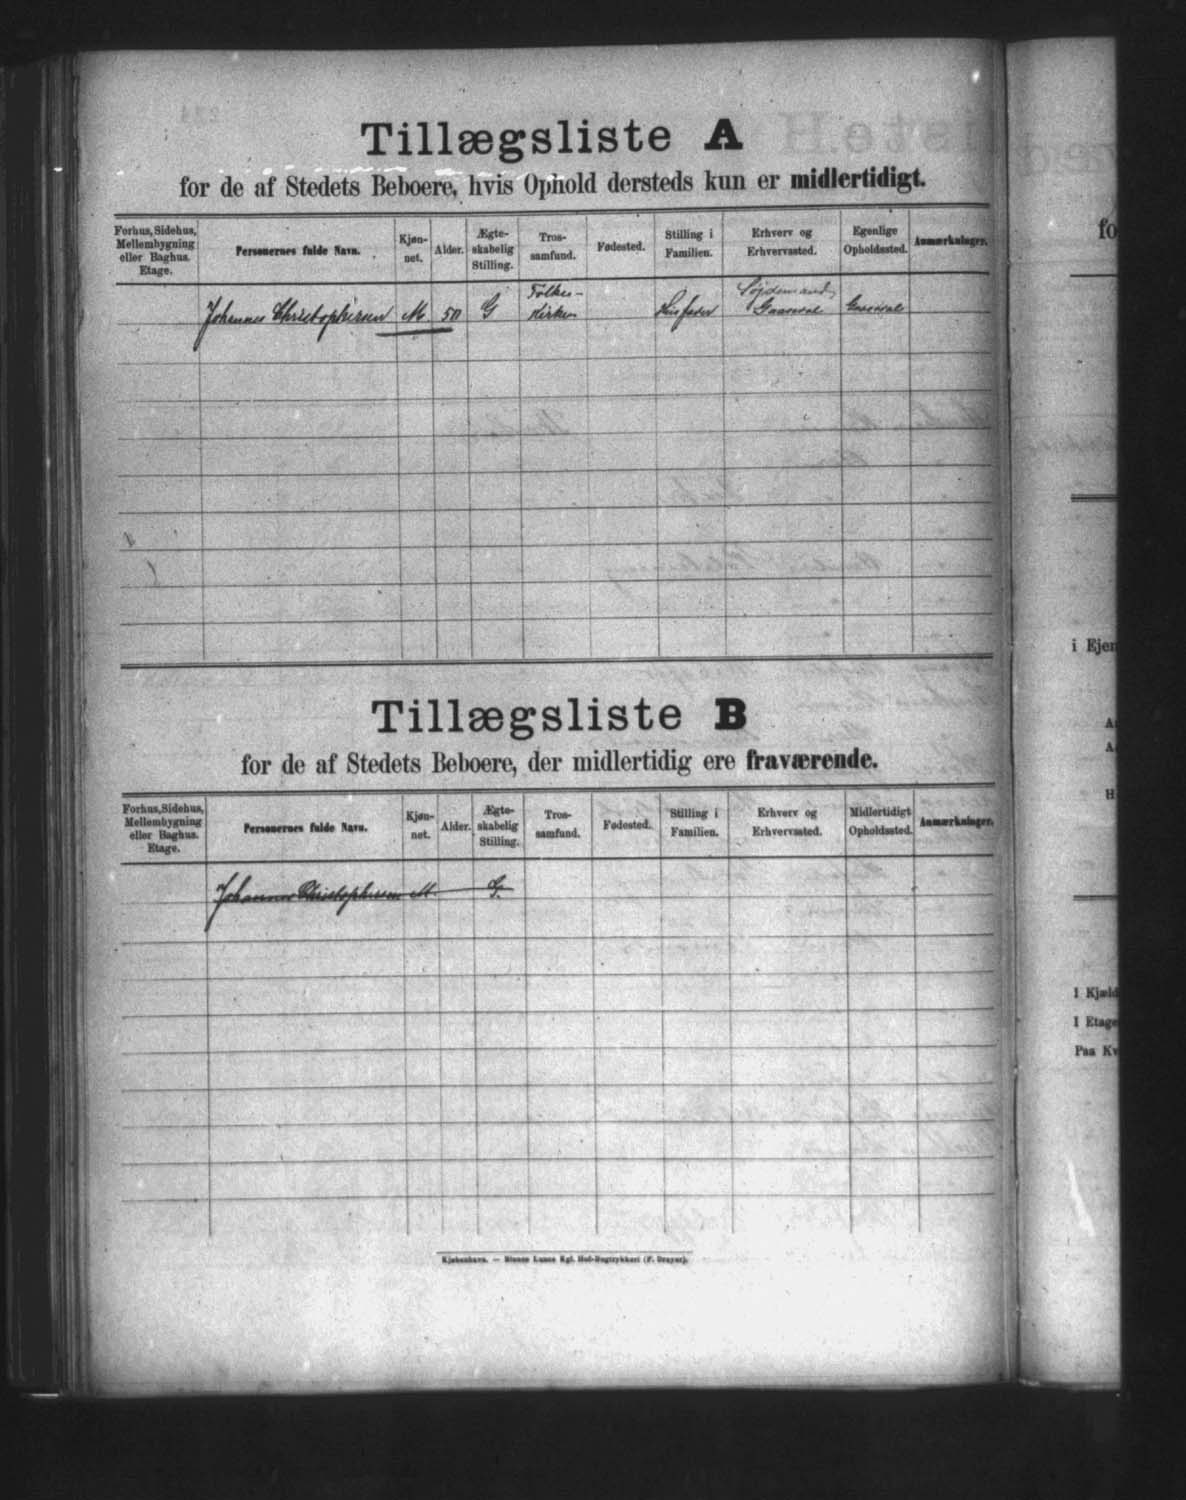 Tillægsliste A
for de af Stedets Beboere, hvis Ophold dersteds kun er midlertidigt.
Forhus, Sidehus, Mellembygning eller Baghus. Etage.
Personernes fulde Navn.
Kjøn-net.
Alder.
Ægte-skabelig Stilling.
Tros-samfund.
Fødested.
Stilling i Familien.
Erhverv og Erhvervssted.
Egenlige Opholdssted.
Anmærkninger.
Johannes Christophersen M 50 G Folke-Kirken Husfader Gaasedal Gaasedal
Tillægsliste B
for de af Stedets Beboere, der midlertidig ere fraværende.
Forhus, Sidehus, Mellembygning eller Baghus. Etage.
Personernes fulde Navn.
Kjøn-net.
Alder.
Ægte-skabelig Stilling.
Tros-samfund.
Fødested.
Stilling i Familien.
Erhverv og Erhvervssted.
Midlertidigt Opholdssted.
Anmærkninger.
Johannes Christophersen M. G.
Kjøbenhavn. — Bianco Lunos Kgl. Hof-Bogtrykkeri (F. Dreyer).
fo
i Ejen
H
1 Kjæld
1 Etage
Paa Kv